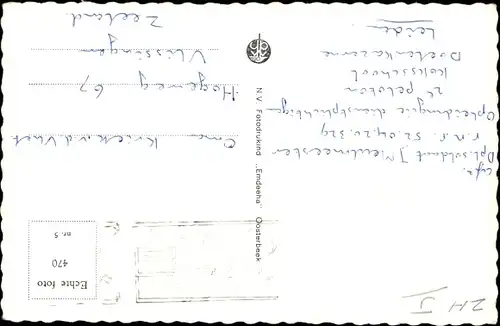 afz.
Dpl. soldaat J Meulmeester
r.n.f. 52.04.20.329
Opleidingcie dienstplichtigen
2e peloton
Koksschool
Doelenkazerne
Leiden.
Oma
Hogeweg 67
Vlissingen
Zeeland
N.V. Fotodrukind „Emdeeha" Oosterbeek
Echte foto
470
nr. 5
ZH